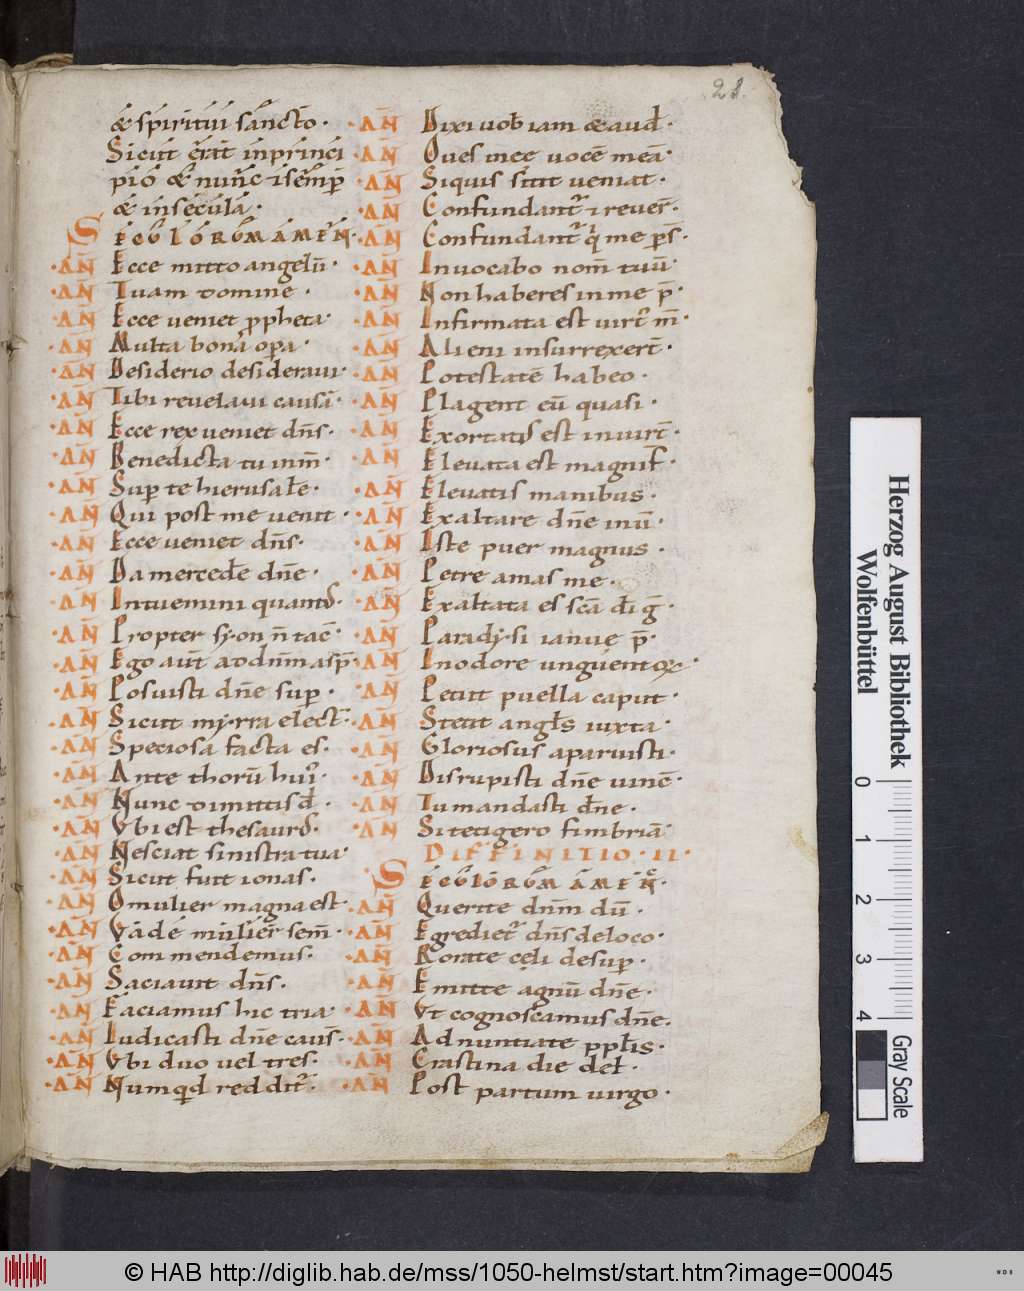 21.
& spiritui sancto·
Sicut erat inprinci
pio & nunc ⁊ semp̄
& insecula·
SECULORUM AMEN·
·AN̄ Ecce mitto angelū·
·AN̄ Tuam domine ·
·AN̄ Ecce veniet ꝓpheta·
·AN̄ Multa bona oꝑa·
·AN̄ Desiderio desideraui·
·AN̄ Tibi reuelaui causā·
·AN̄ Ecce rex ueniet dn̄s·
·AN̄ Benedicta tu inm̄·
·AN̄ Suꝑ te hierusałe·
·AN̄ Qui post me uenit·
·AN̄ Ecce ueniet dn̄s·
·AN̄ Da mercede dn̄e·
·AN̄ Intuemini quant
·AN̄ Propter sy·on n̄ tac̄·
·AN̄ Ego aut̄ addn̄m asp̄·
·AN̄ Posuisti dn̄e suꝑ·
·AN̄ Sicut my·rra elect̄·
·AN̄ Speciosa facta es·
·AN̄ Ante thorū hui᷒·
·AN̄ Nunc dimittis đ·
·AN̄ Ubi est thesaur
·AN̄ Nesciat sinistra tua·
·AN̄ Sicut fuit ionas·
·AN̄ O mulier magna est·
·AN̄ Vade mulier sem̄·
·AN̄ Commendemus·
·AN̄ Saciauit dn̄s·
·AN̄ Faciamus hic tria·
·AN̄ Iudicasti dn̄e caus̄·
·AN̄ Ubi duo uel tres·
·AN̄ Numqd redditr̄·
·AN̄ Dixi uob iam & aud·
·AN̄ Oues mee uocē meā·
·AN̄ Siquis sitit ueniat·
·AN̄ Confundant᷑ ⁊ reuer̄·
·AN̄ Confundant᷑ q̇ me ꝑs̄·
·AN̄ Inuocabo nom̄ tuū·
·AN̄ Non haberes inme p̄·
·AN̄ Infirmata est uirt᷒ m̄·
·AN̄ Alieni insurrexert̄·
·AN̄ Potestatē habeo·
·AN̄ Plagent eū quasi·
·AN̄ Exortatus est inuirt̄·
·AN̄ Eleuata est magnif̄·
·AN̄ Eleuatis manibus·
·AN̄ Exaltare dn̄e inū·
·AN̄ Iste puer magnus·
·AN̄ Petre amas me·
·AN̄ Exaltata es sc̄a đi ḡ·
·AN̄ Parady·si ianue p̄·
·AN̄ Inodore unguentoꝝ·
·AN̄ Petiit puella caput·
·AN̄ Stetit angłs iuxta·
·AN̄ Gloriosus aparuisti·
·AN̄ Disrupisti dn̄e uinē·
·AN̄ Tu mandasti dn̄e·
·AN̄ Si tetigero fimbriā·
DIFFINITIO·II·
SECULORUM AMEN·
·AN̄ Querite dn̄m dū·
·AN̄ Egrediet᷑ dn̄s deloco·
·AN̄ Rorate cęli desuꝑ·
·AN̄ Emitte agnū dn̄e·
·AN̄ Ut cognoscamus dn̄e·
·AN̄ Adnuntiate ppłis·
·AN̄ Crastina die del·
·AN̄ Post partum uirgo·
Herzog August Bibliothek
Wolfenbüttel
0 1 2 3 4
Gray Scale
© HAB http://diglib.hab.de/mss/1050-helmst/start.htm?image=00045